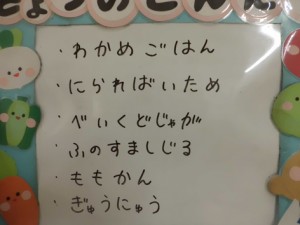 きょうのこんだて
・わかめごはん
・にらればいため
・べいくどじゃが
・ふのすましじる
・ももかん
・ぎゅうにゅう